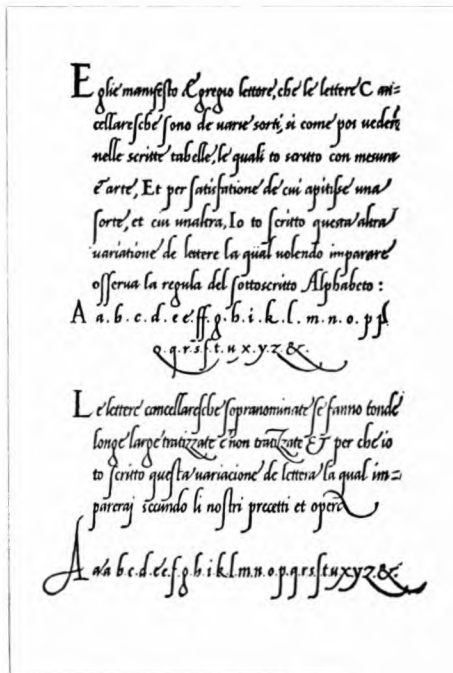 Eglie manifesto Egregio lettore, che le lettere Can=
cellaresche sono de varie sorti, si come poi veder
nelle scritte tabelle, le quali to scritto con mesura
è arte, Et per satisfatione de cui apitisse una
sorte, et cui unaltra, Io to scritto questa altra
variatione de lettere la qual volendo imparare
osserva la regula del sottoscritto Alphabeto :
A a.b.c.d.e e.ff.g.h.i.k.l.m.n.o.p p
q.q.r.s.ſ.t.u x.y.z &.
Le lettere cancellaresche sopranominate se fanno tonde
longe large tratizzate e non tratizzate Et per che io
to scritto questa variacione de lettera la qual im=
pareraj secundo li nostri precetti et opere
A a a b.c.d.e e.f.g.h i k l m.n.o.p.q.r s ſ t u x y z &.